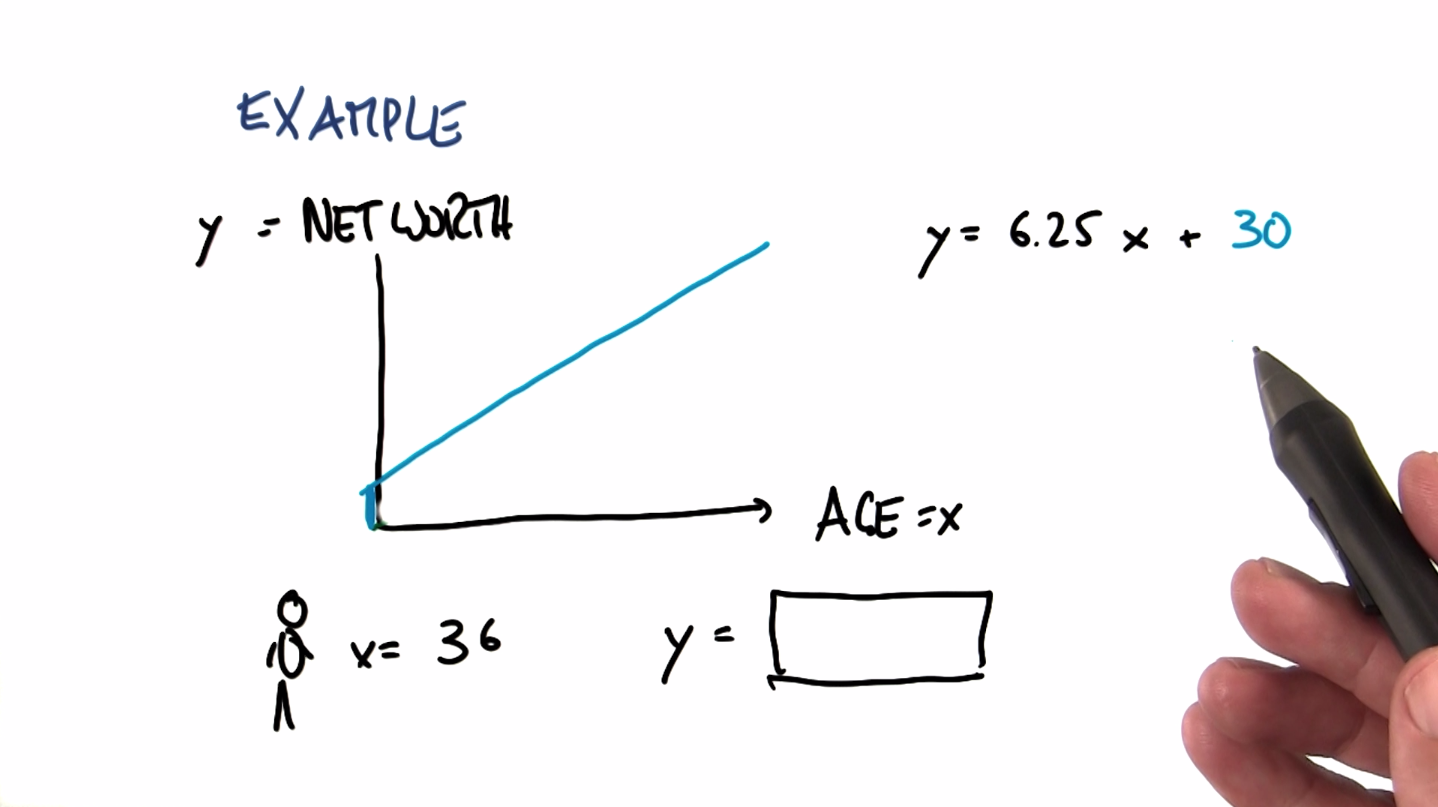 EXAMPLE
y = NET WORTH
y = 6.25 x + 30
AGE = x
x = 36
y =